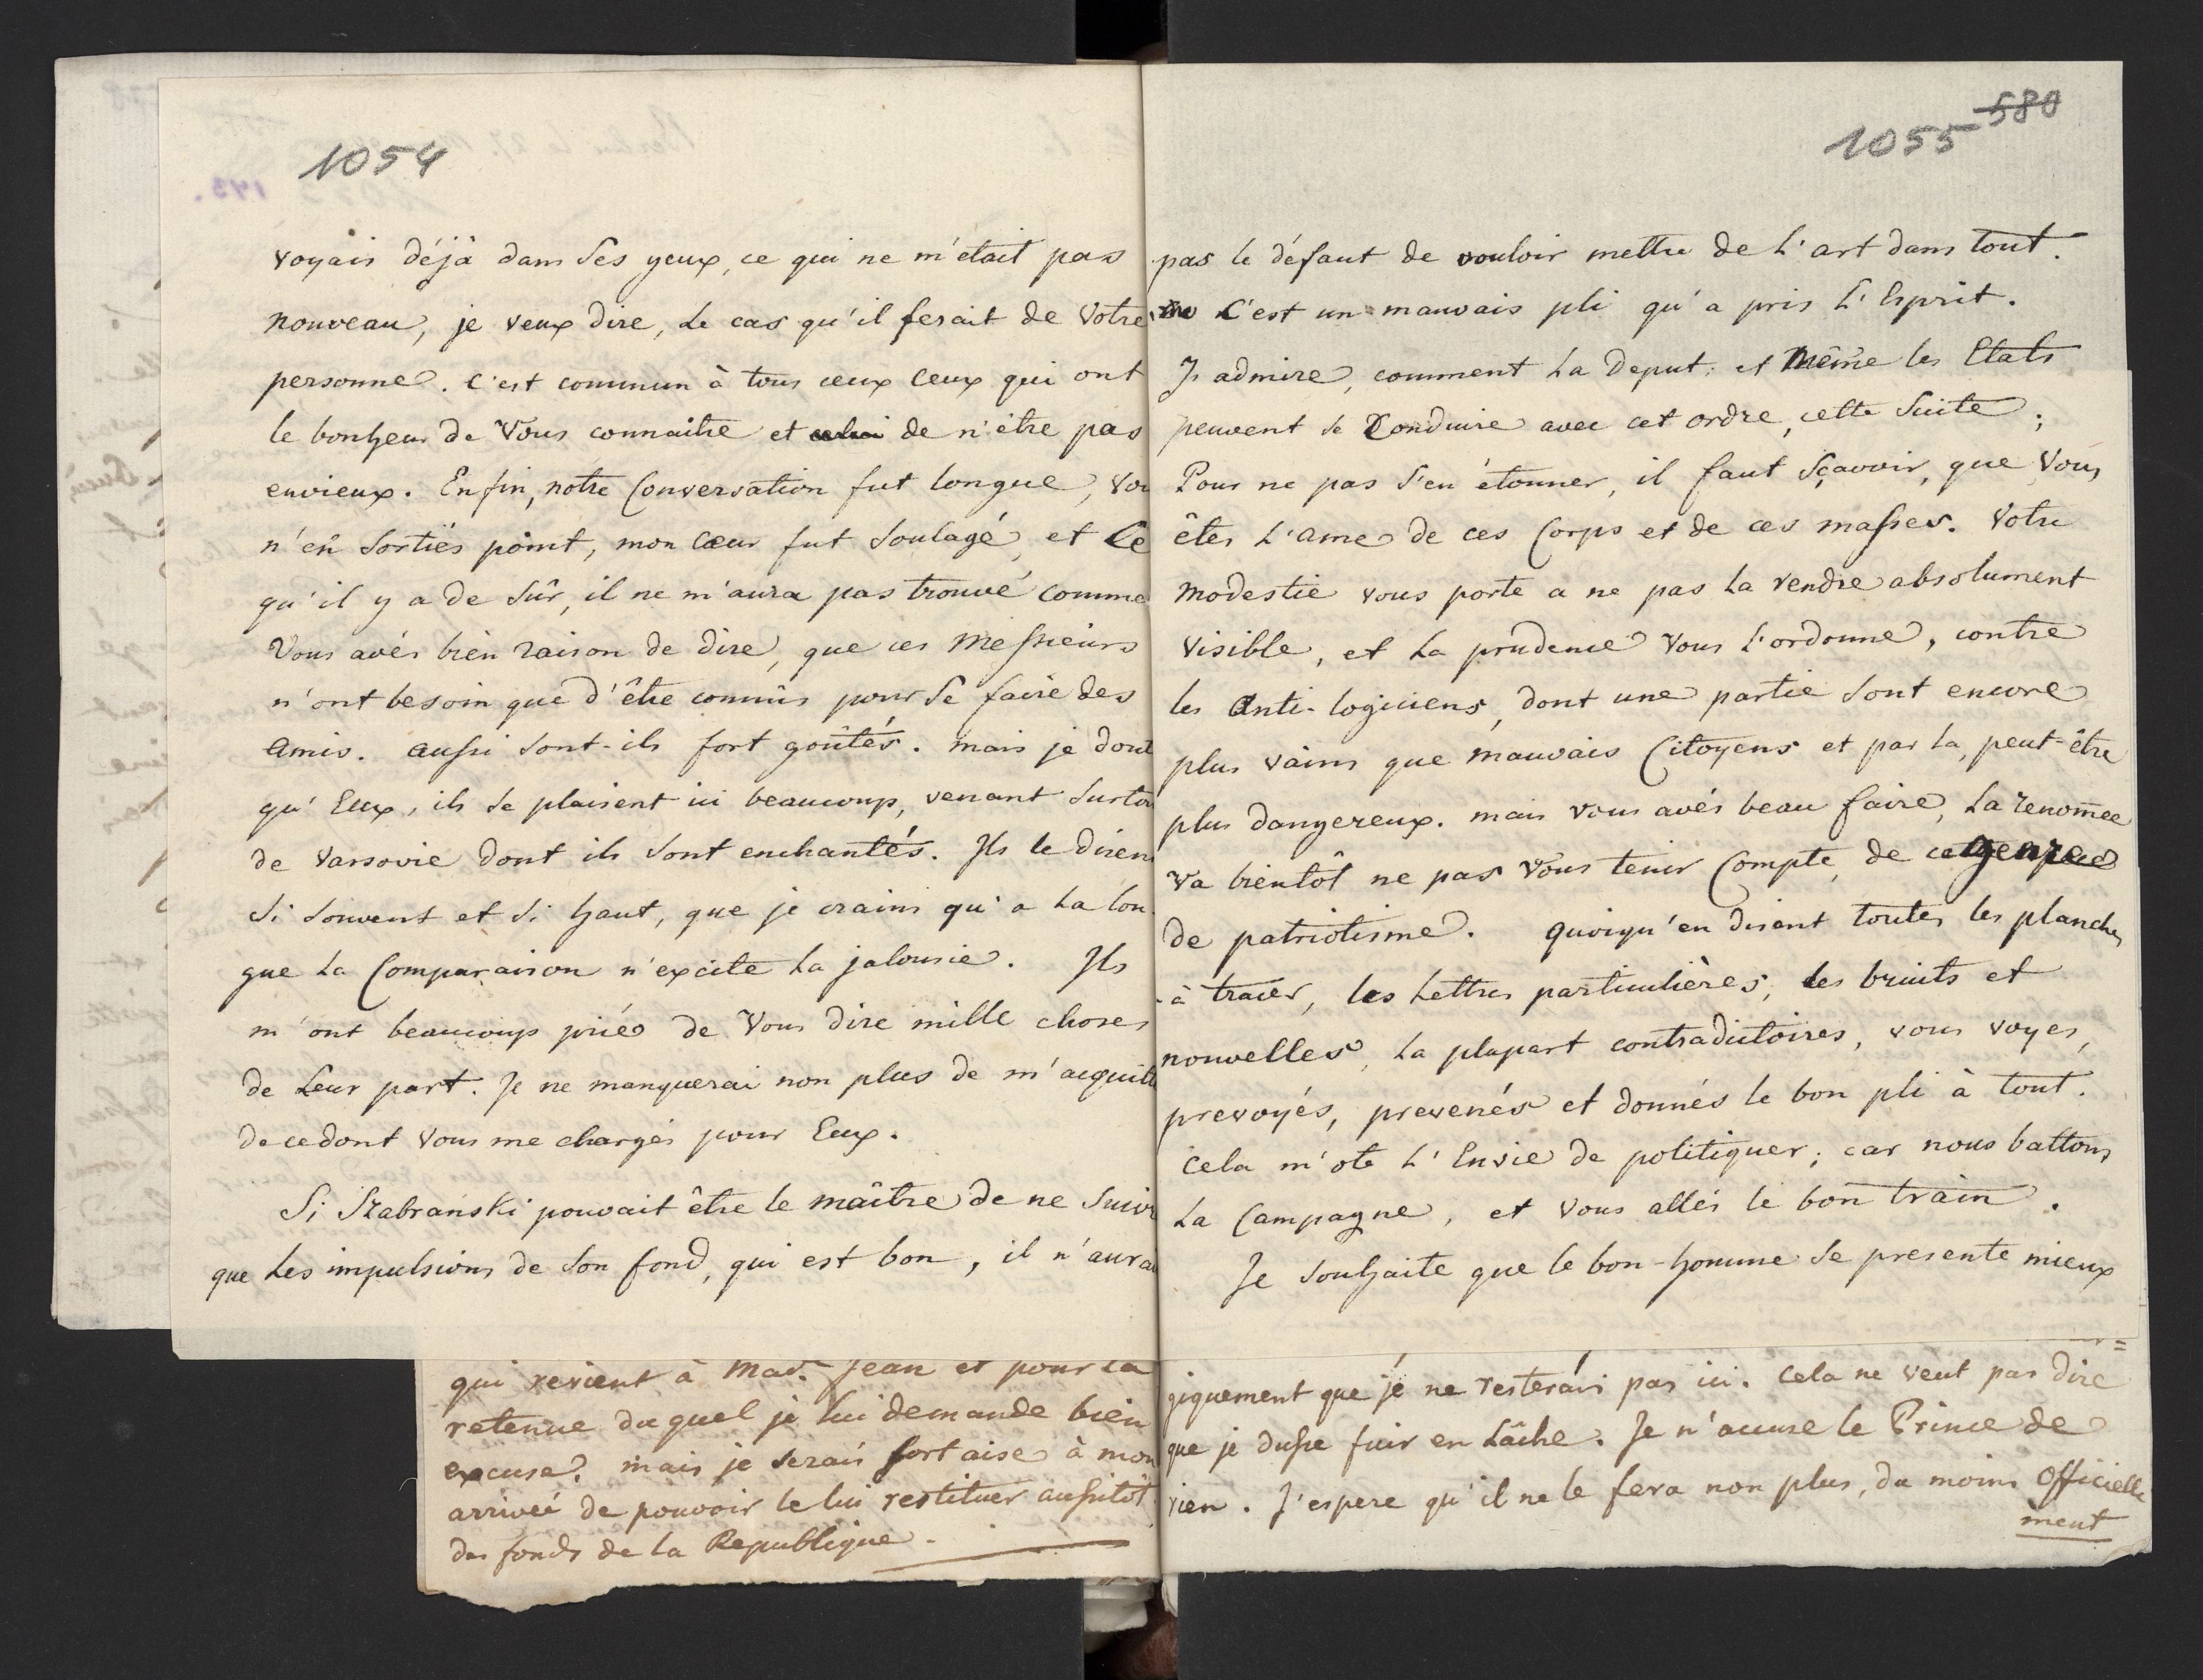 1054
voyais déjà dans ses yeux, ce qui ne m'était pas
nouveau, je veux dire, le cas qu'il ferait de votre
personne. C'est commun à tous ceux ceux qui ont
le bonheur de Vous connaitre et celui de n'être pas
envieux. Enfin, notre Conversation fut longue, vou
n'en sortiés point, mon Cœur fut soulagé, et Ce
qu'il y a de sûr, il ne m'aura pas trouvé comme
Vous avés bien raison de dire, que ces Messieurs
n'ont besoin que d'être connûs pour se faire des
Amis. aussi sont-ils fort goûtés. mais je dout
qu' Eux, ils se plaisent ici beaucoup, venant surtou
de Varsovie dont ils sont enchantés. Ils le disen
si souvent et si haut, que je crains qu'a la lon
gue la Comparaison n'excite la jalousie. Ils
m'ont beaucoup prié de Vous dire mille choses
de Leur part. Je ne manquerai non plus de m'acquitt
de ce dont Vous me chargés pour Eux.
Si Szabranski pouvait être le maître de ne suivr
que les impulsions de son fond, qui est bon, il n'aura
qui revient à Mad. Jean et pour la
retenue du quel je lui demande bien
excuse. mais je serais fort aise à mon
arriveé de pouvoir le lui restituer aussitôt
des fonds de la Republique.
1055 580
pas le défaut de vouloir mettre de l'art dans tout.
C'est un mauvais pli qu'a pris l'Esprit.
J'admire, comment la Deput: et Même les Etats
peuvent se Conduire avec cet ordre, cette suite;
Pour ne pas s'en étonner, il faut sçavoir, que Vous
êtes l'ame de ces Corps et de ces masses. Votre
Modestie vous porte a ne pas la rendre absolument
visible, et la prudence Vous l'ordonne, contre
les Anti-logiciens, dont une partie sont encore
plus vains que mauvais Citoyens et par la, peut-être
plus dangereux. mais vous avés beau faire, la renom̄ee
va bientôt ne pas Vous tenir Compte, de ce genre
de patriotisme. quoiqu'en disent toutes les planches
à tracer, les Lettres particulières, les bruits et
nouvelles, la plupart contradictoires, vous voyes,
prevoyés, prevenés et donnés le bon pli à tout.
Cela m'ote l'Envie de politiquer; car nous battons
la Campagne, et vous allés le bon train.
Je souhaite que le bon-homme se presente mieux
giquement que je ne resterais pas ici. Cela ne veut pas dire
que je dusse fuir en Lâche. Je n'accuse le Prince de
rien. J'espere qu'il ne le fera non plus, du moins Officielle
ment